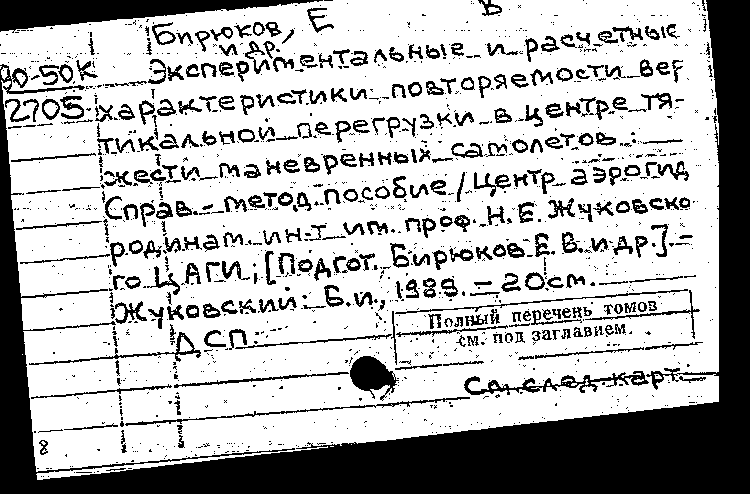 Бирюков, Е В
и др.
90-50К Экспериментальные и расчетные
2705 характеристики повторяемости вер
тикальной перегрузки в центре тя-
жести маневренных самолетов :
Справ. - метод. пособие / Центр. аэрогид
родинам. ин-т им. проф. Н. Е. Жуковско
го ЦАГИ; [Подгот. Бирюков Е. В. и др.]. -
Жуковский: Б. и., 1989. - 20 см.
ДСП.
Полный перечень томов
см. под заглавием.
См. след. карт.
8